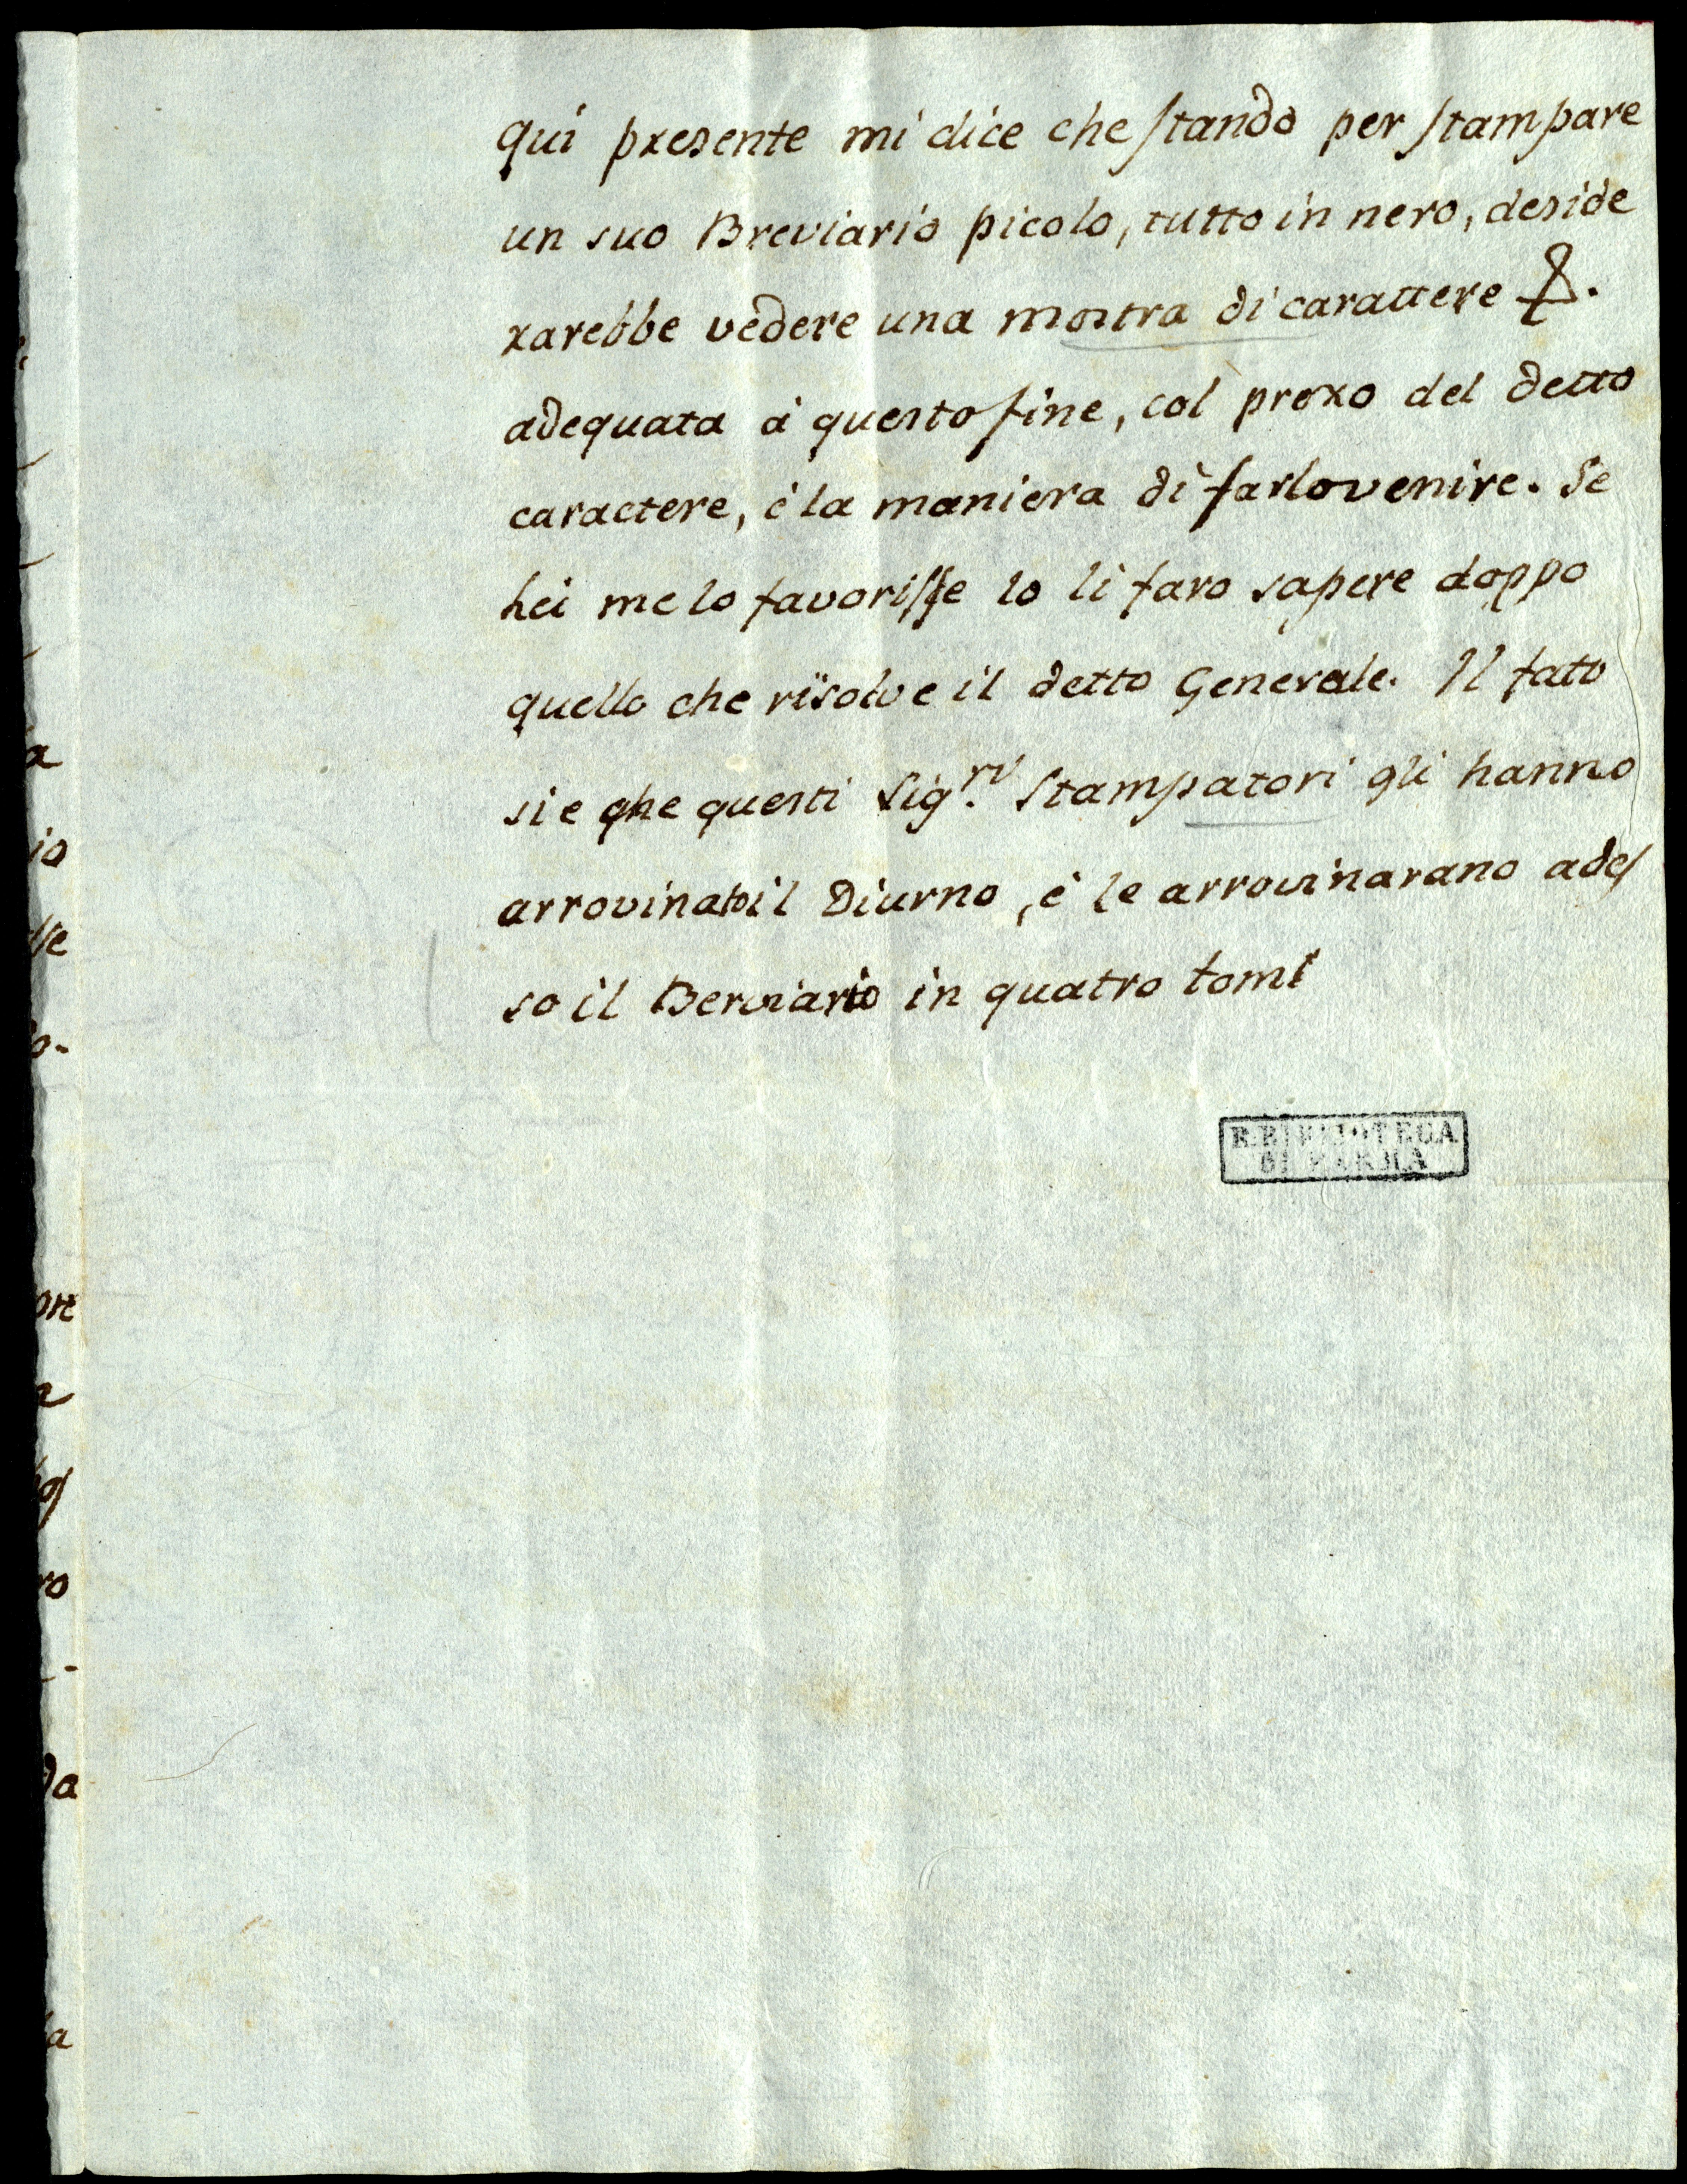 qui presente mi dice che stando per stampare
un suo Breviario picolo, tutto in nero, deside
rarebbe vedere una mostra di carattere
adequata à questo fine, col prexo del detto
caractere, è la maniera di farlo venire. Se
Lei me lo favorisse lo li faro sapere doppo
quello che risolve il detto Generale. Il fato
si e che questi Sig.ri Stampatori gli hanno
arrovinato il Diurno, è le arrovinarano ades
so il Berviario in quatro tomi
R. BIBLIOTECA
DI PARMA
a
io
sse
o-
ore
a
ro
-
da
la